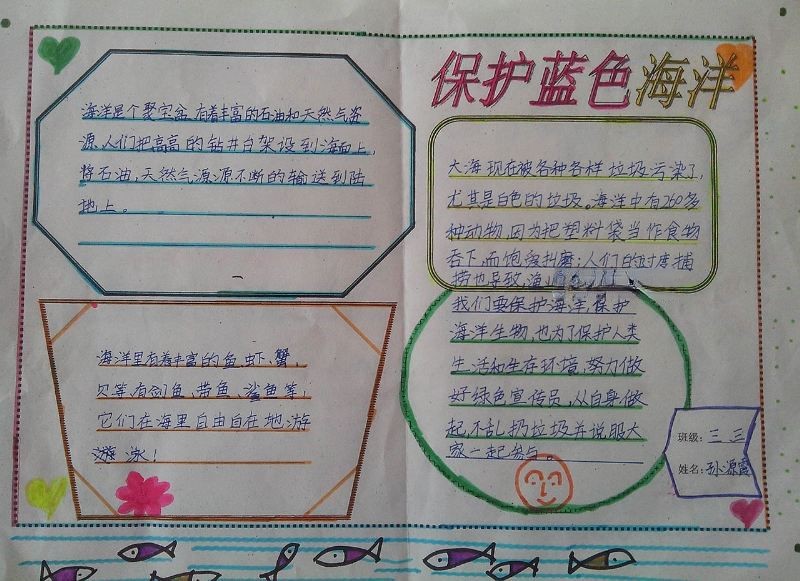 海洋是个聚宝盆,有着丰富的石油和天然气资
源,人们把高高的钻井台架设到海面上,
将石油,天然气源源不断的输送到陆
地上。
海洋里有着丰富的鱼、虾、蟹、
贝等,有剑鱼、带鱼、鲨鱼等,
它们在海里自由自在地游
游泳!
保护蓝色海洋
大海现在被各种各样垃圾污染了,
尤其是白色的垃圾。海洋中有260多
种动物,因为把塑料袋当作食物
吞下,而饱受折磨;人们的过度捕
捞也导致渔
我们要保护海洋,保护
海洋生物,也为了保护人类
生活和生存环境,努力做
好绿色宣传员,从自身做
起,不乱扔垃圾并说服大
家一起参与。
班级:三 三
姓名:孙源霞